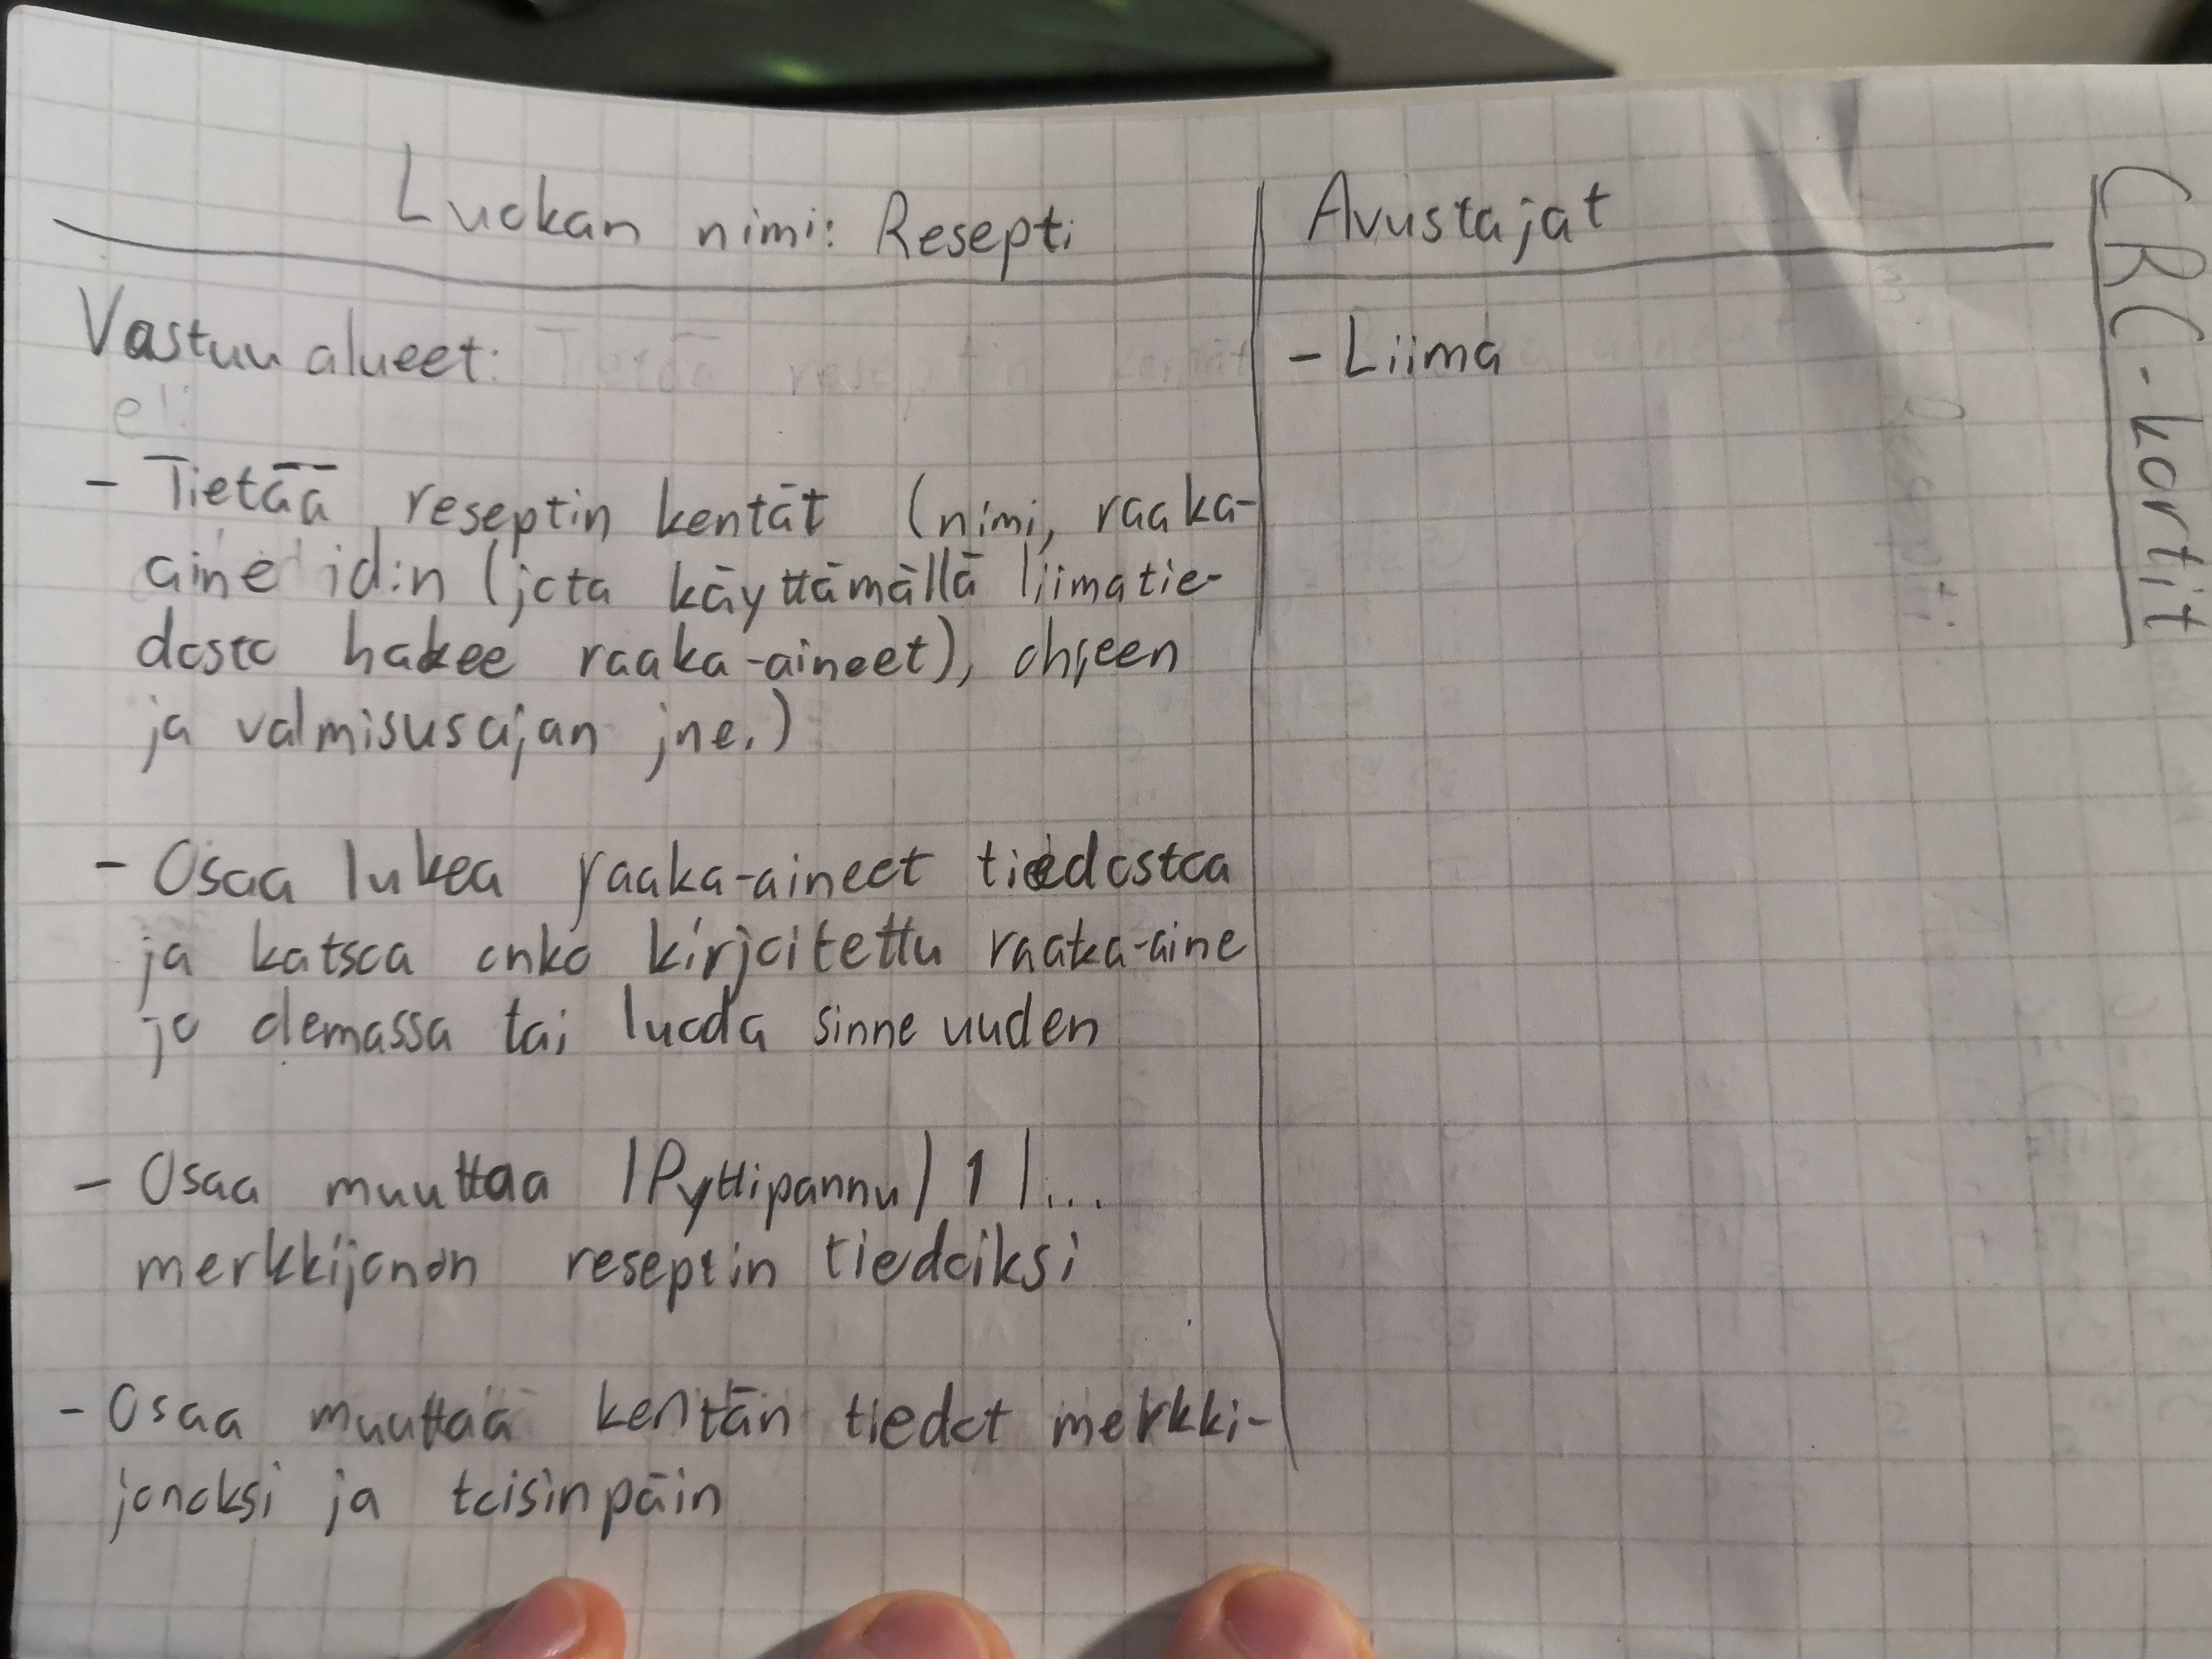 CRC-kortit
Luokan nimi: Resepti
Avustajat
Vastuu alueet:
- Liima
- Tietää reseptin kentät (nimi, raaka-
aine id:n (jota käyttämällä liimatie-
dosto hakee raaka-aineet), ohjeen
ja valmisusajan jne.)
- Osaa lukea raaka-aineet tiedostoa
ja katsoa onko kirjoitettu raaka-aine
jo olemassa tai luoda sinne uuden
- Osaa muuttaa |Pyttipannu| 1 |...
merkkijonon reseptin tiedoiksi
- Osaa muuttaa kentän tiedot merkki-
jonoksi ja toisinpäin